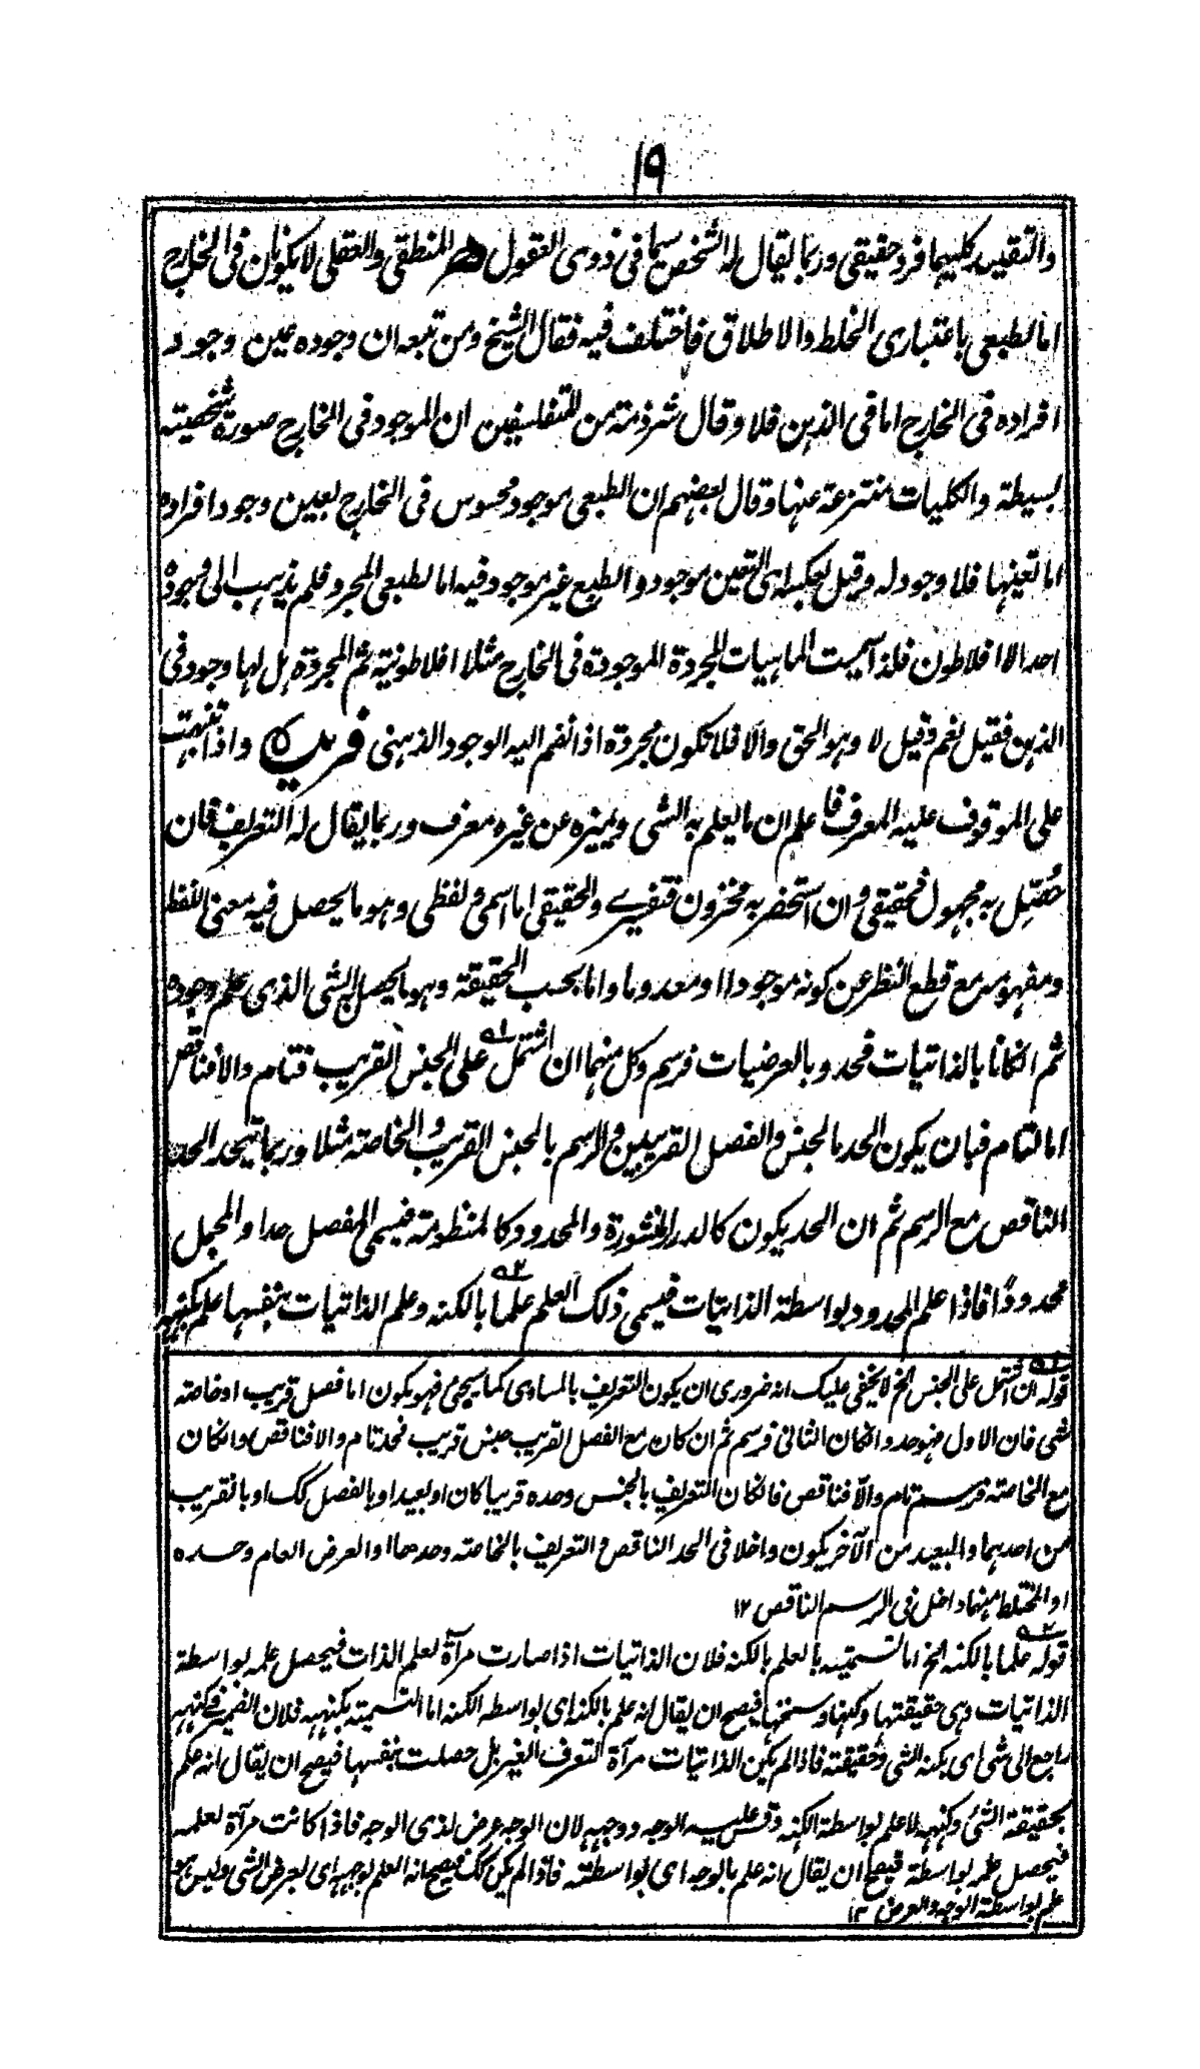 ١٩
والتقييد كليهما فرد حقيقي وربما يقال له الشخص سيما في ذوي العقول ثم المنطقي والعقلي لا يكونان في الخارج
اما الطبعي باعتباري الخلط والاطلاق فاختلف فيه فقال الشيخ ومن تبعه ان وجوده عين وجود
افراده في الخارج اما في الذهن فلا وقال شرذمة من المتفلسفين ان الموجود في الخارج صورة شخصيته
بسيطة والكليات منتزعة عنها وقال بعضهم ان الطبعي موجود محسوس في الخارج بعين وجود افراده
اما تعينها فلا وجود له وقيل بعكسه اي التعين موجود والطبع غير موجود فيه اما الطبعي المجرد فلم يذهب الى وجوده
احد الا افلاطون فلذا سميت الماهيات المجردة الموجودة في الخارج مثلا افلاطونية ثم المجردة هل لها وجود في
الذهن فقيل نعم وقيل لا وهو الحق والا فلا تكون مجردة اذا انضم اليه الوجود الذهني واذا تنبهت
على الموقوف عليه المعرف فاعلم ان ما يعلم به الشي ويميزه عن غيره معرف وربما يقال له التعريف فان
حُصّل به مجهول فحقيقي وان استحضر به مخزون فتفسيرے والحقيقي اما اسمي ولفظي وهو ما يحصل فيه معنى اللفظ
ومفهومه مع قطع النظر عن كونه موجودا او معدوما واما بحسب الحقيقة وهو ما يحصل الشي الذي علم وجوده
ثم انكانا بالذاتيات فحد وبالعرضيات فرسم وكل منهما ان اشتمل على الجنس القريب فتام والا فناقص
اما التام فبان يكون الحد بالجنس والفصل القريبين والرسم بالجنس القريب والخاصة مثلا وربما يتحد الحد
الناقص مع الرسم ثم ان الحد يكون كالدرر المنثورة والمحدود كالمنظومة فيسمى المفصل حدا والمجمل
محدودًا فاذا علم المحدود بواسطة الذاتيات فيسمى ذلك العلم علما بالكنه وعلم الذاتيات بنفسها علم بكنهه
قوله ان اشتمل على الجنس الخ لا يخفى عليك انه ضروري ان يكون التعريف بالمساوي كما سيجئ فهو يكون اما فصل قريب او خاصة
شي فان الاول فهو حد وانكان الثاني فرسم ثم ان كان مع الفصل القريب جنس قريب فحد تام والا فناقص وانكان
مع الخاصة فرسم تام والا فناقص فانكان التعريف بالجنس وحده قريبا كان او بعيدا او بالفصل كك او بالقريب
من احدهما والبعيد من الآخر يكون داخلا في الحد الناقص والتعريف بالخاصة وحدها او العرض العام وحده
او المختلط منهما داخل في الرسم الناقص ١٢
قوله علما بالكنه الخ اما التسمية بالعلم بالكنه فلان الذاتيات اذا صارت مرآة لعلم الذات فيحصل علمه بواسطة
الذاتيات وهي حقيقتها وكنهها وسنخها فيصح ان يقال انه علم بالكنه اي بواسطة الكنه اما التسمية بكنهه فلان الضمير في كنهه
راجع الى شي اي بكنه الشي وحقيقته فاذا لم يكن الذاتيات مرآة لتعرف الغير بل حصلت بنفسها فيصح ان يقال انه علم
بحقيقة الشئ وكنهه لا علم بواسطة الكنه وقس عليه الوجه ووجهه لان الوجه عرض لذي الوجه فاذا كانت مرآة لعلمه
فيحصل علمه بواسطة فيصح ان يقال انه علم بالوجه اي بواسطته فاذا لم يكن كك فيصح انه العلم بوجهه اي بعرض الشي وليس هو
علم بواسطة الوجه والعرض ١٢